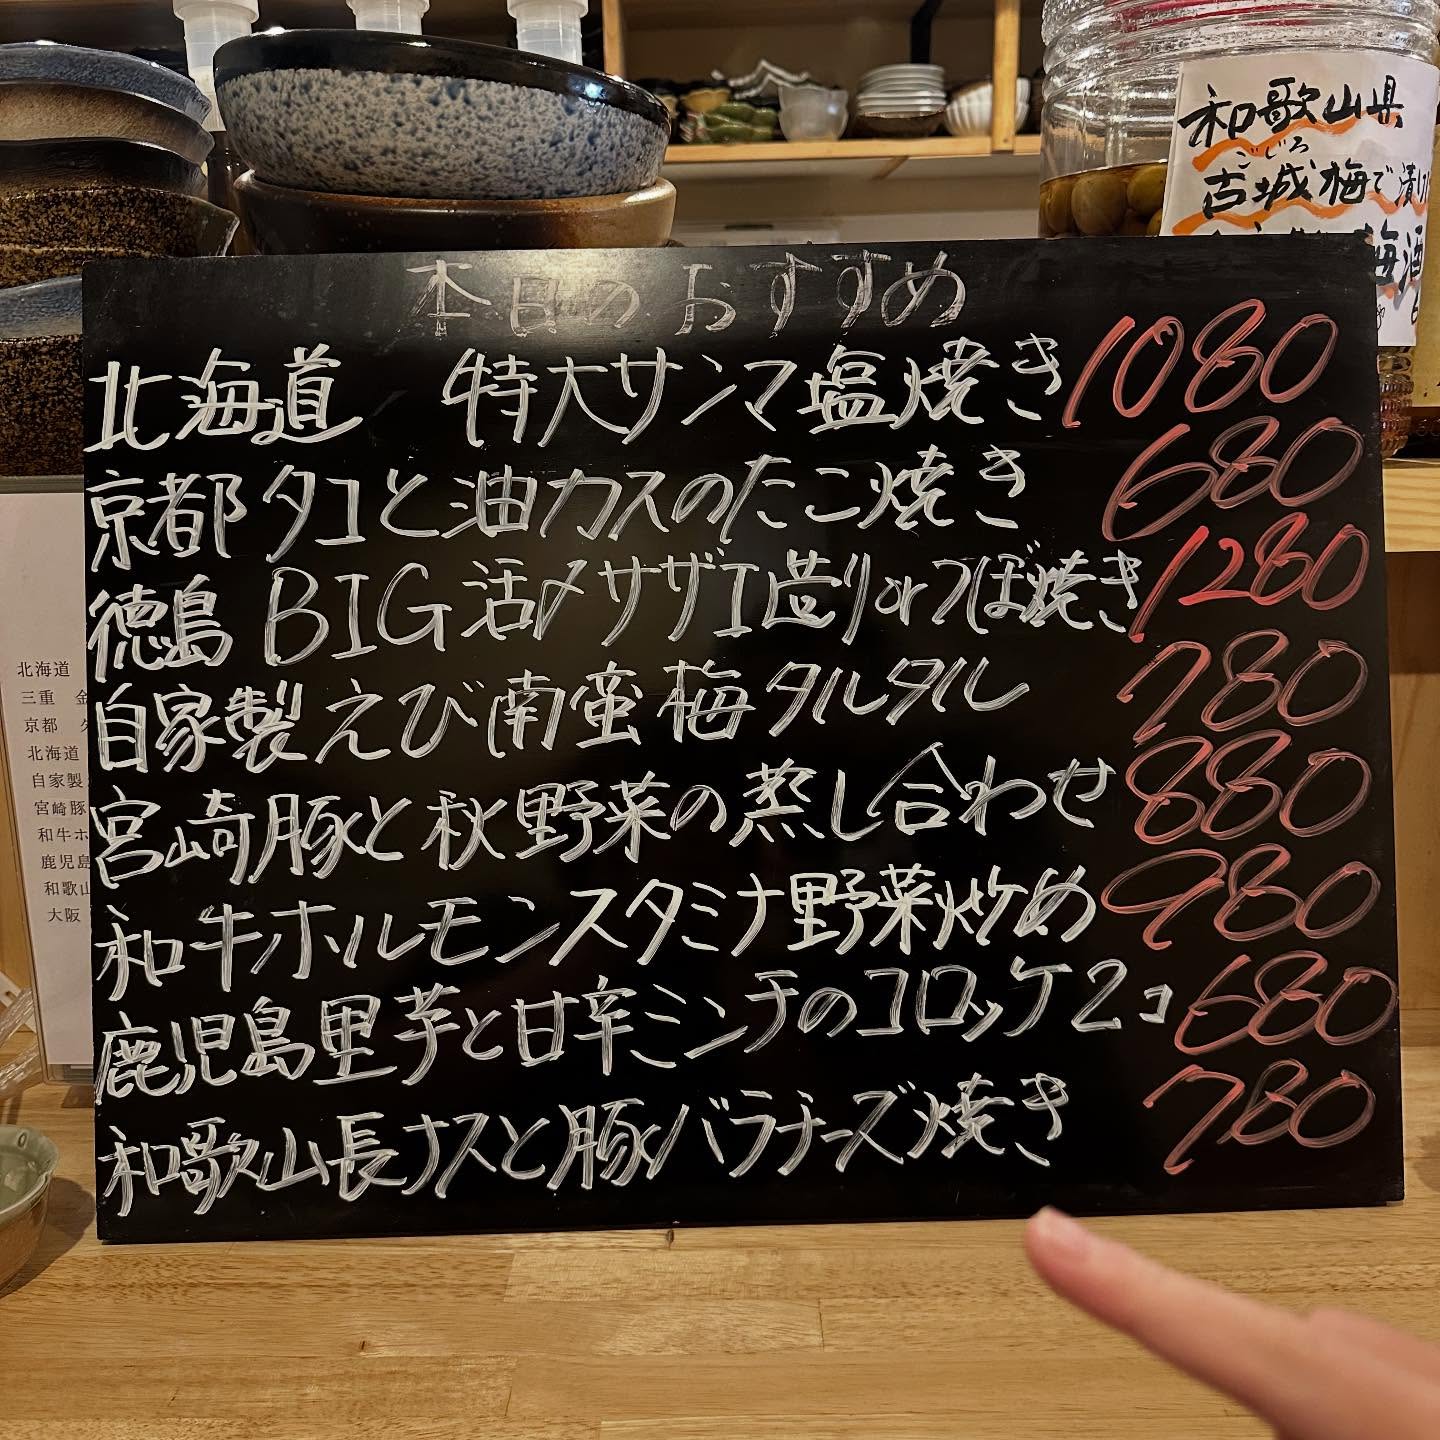 和歌山県
ごじろ
古城梅で漬け
梅酒
本日のおすすめ
北海道 特大サンマ塩焼き 1080
京都タコと油カスのたこ焼き 680
徳島 BIG活〆サザエ造りorつぼ焼き 1280
自家製えび南蛮梅タルタル 780
宮崎豚と秋野菜の蒸し合わせ 880
和牛ホルモンスタミナ野菜炒め 980
鹿児島里芋と甘辛ミンチのコロッケ2コ 680
和歌山長ナスと豚バラチーズ焼き 780
北海道
三重 金
京都
北海道
自家製
宮崎豚
和牛ホ
鹿児島
和歌山
大阪